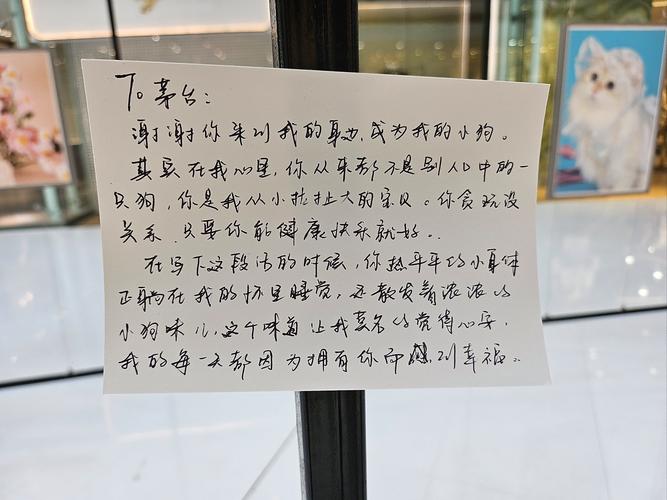 To 茅台：
谢谢你来到我的身边，成为我的小狗。
其实在我心里，你从来都不是别人口中的一
只狗，你是我从小拉扯大的宝贝。你贪玩没
关系，只要你能健康快乐就好。
在写下这段话的时候，你热乎乎的小身体
正躺在我的怀里睡觉，还散发着浓浓的
小狗味儿，这个味道让我莫名的觉得心安，
我的每一天都因为拥有你而感到幸福。